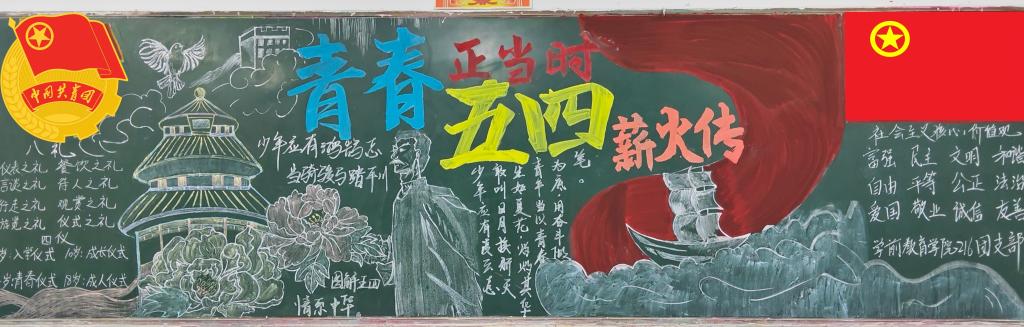 中国共青团
青春正当时
五四薪火传
八礼
仪表之礼 餐饮之礼
言谈之礼 待人之礼
行走之礼 观赏之礼
游览之礼 仪式之礼
四仪
岁入学仪式 10岁:成长仪式
岁:青春仪式 18岁:成人仪式
少年应有鸿鹄志
当骑骏马踏平川
团解五四
情系中华
为底,用奋斗
青年当以青春
生如夏花,
敢叫日月换新天
少年应有凌云志
社会主义核心价值观
富强 民主 文明 和谐
自由 平等 公正 法治
爱国 敬业 诚信 友善
学前教育学院216团支部